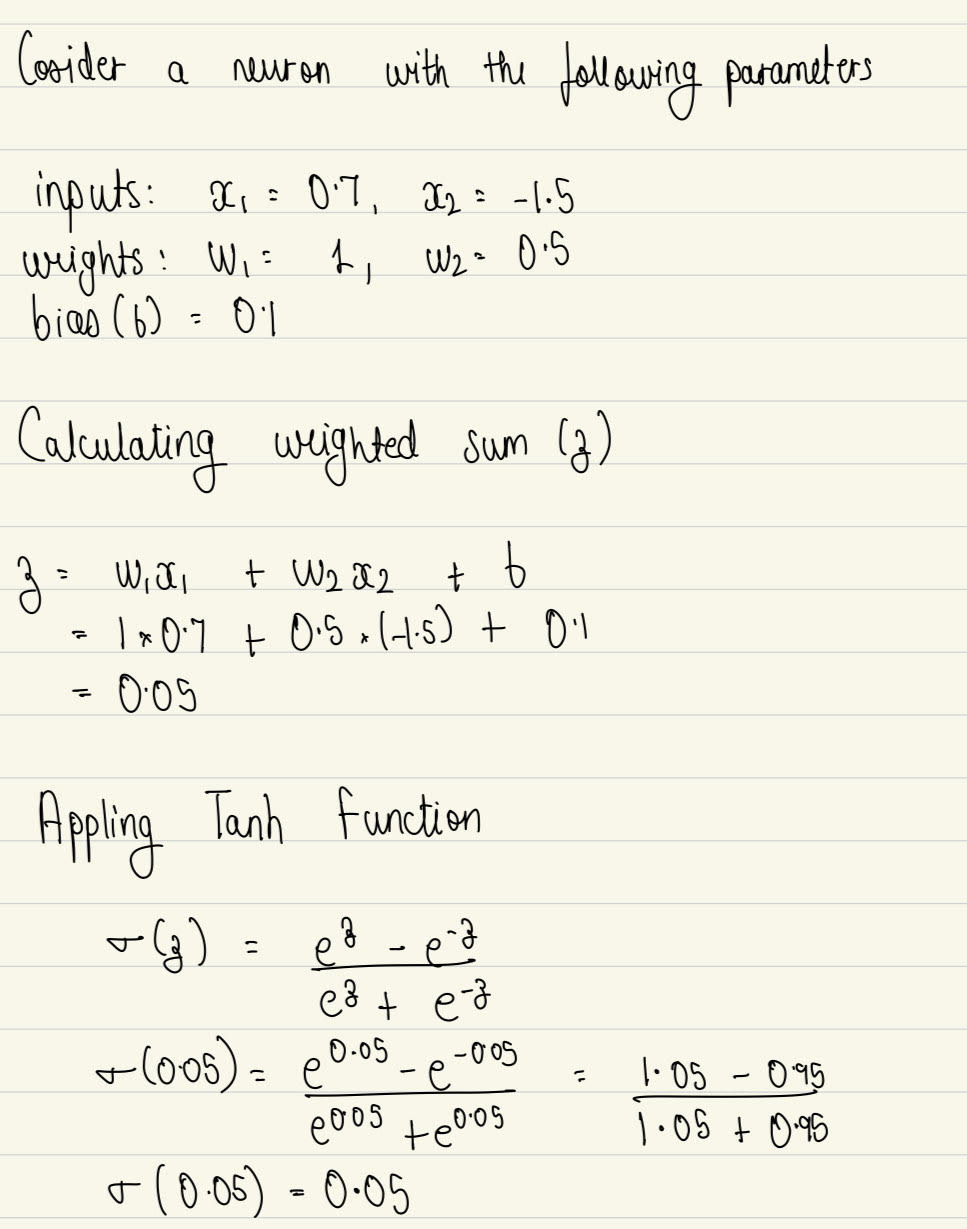 Cosider a neuron with the following parameters
inputs: x₁ = 0.7, x₂ = -1.5
weights: W₁ = 1, W₂ = 0.5
bias(b) = 0.1
Calculating weighted sum (z)
z = W₁x₁ + W₂x₂ + b
= 1 * 0.7 + 0.5 * (-1.5) + 0.1
= 0.05
Appling Tanh Function
σ(z) = (e^z - e^-z) / (e^z + e^-z)
σ(0.05) = (e^0.05 - e^-0.05) / (e^0.05 + e^0.05) = (1.05 - 0.95) / (1.05 + 0.95)
σ(0.05) = 0.05